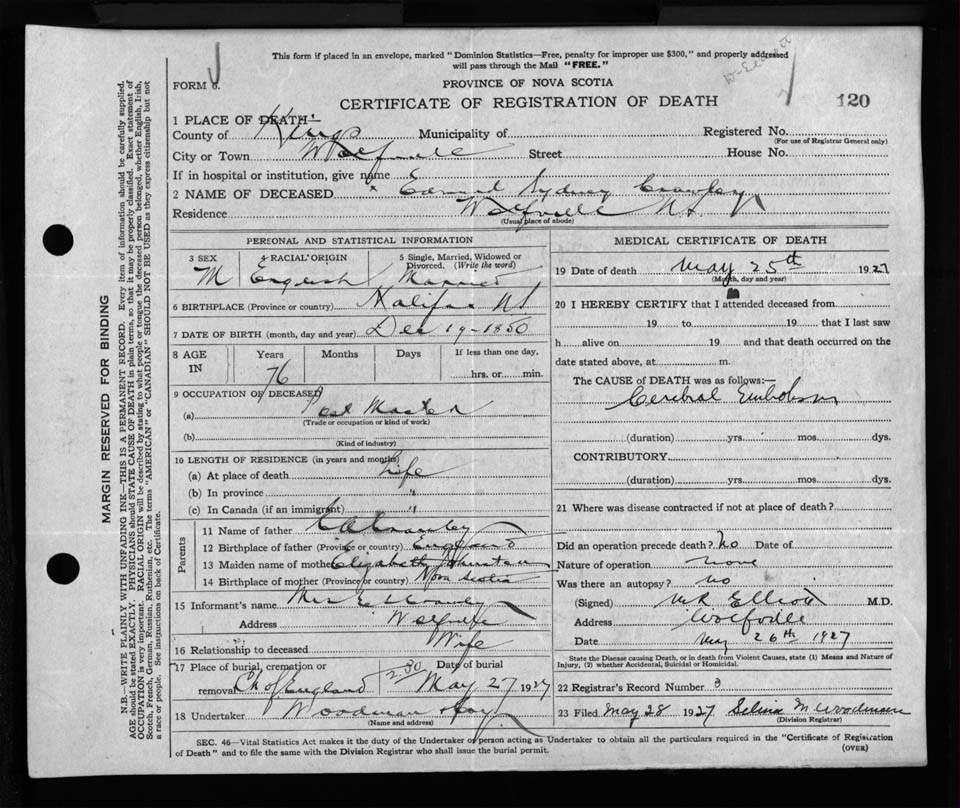 This form if placed in an envelope, marked "Dominion Statistics—Free, penalty for improper use $300," and properly addressed
will pass through the Mail "FREE."
FORM 6.
PROVINCE OF NOVA SCOTIA
CERTIFICATE OF REGISTRATION OF DEATH
120
1 PLACE OF DEATH—
County of Kings Municipality of Registered No.
(For use of Registrar General only)
City or Town Wolfville Street House No.
If in hospital or institution, give name
2 NAME OF DECEASED Sydney Crawley
Residence Wolfville N.S.
(Usual place of abode)
MARGIN RESERVED FOR BINDING
N.B.—WRITE PLAINLY WITH UNFADING INK—THIS IS A PERMANENT RECORD. Every item of information should be carefully supplied.
AGE should be stated EXACTLY. PHYSICIANS should STATE CAUSE OF DEATH in plain terms, so that it may be properly classified. Exact statement of
OCCUPATION is very important. RACIAL ORIGIN will be described by stating to what people or tongue the deceased person belonged, whether English, Irish,
Scotch, French, German, Russian, Ruthenian, etc. The terms "AMERICAN" or "CANADIAN" SHOULD NOT BE USED as they express citizenship but not
a race or people. See instructions on back of Certificate.
PERSONAL AND STATISTICAL INFORMATION
3 SEX
M
4 RACIAL ORIGIN
English
5 Single, Married, Widowed or
Divorced. (Write the word)
Married
6 BIRTHPLACE (Province or country) Halifax N.S.
7 DATE OF BIRTH (month, day and year) Dec 19-1850
8 AGE
IN
Years
76
Months
Days
If less than one day,
hrs. or min.
9 OCCUPATION OF DECEASED
(a) Post Master
(Trade or occupation or kind of work)
(b)
(Kind of industry)
10 LENGTH OF RESIDENCE (in years and months)
(a) At place of death Life
(b) In province "
(c) In Canada (if an immigrant) "
Parents
11 Name of father Crawley
12 Birthplace of father (Province or country) England
13 Maiden name of mother Elizabeth Johnston
14 Birthplace of mother (Province or country) Nova Scotia
15 Informant's name Mrs E Crawley
Address Wolfville
16 Relationship to deceased Wife
17 Place of burial, cremation or
removal Ch of England
Date of burial
May 27 1927
18 Undertaker Woodman
(Name and address)
MEDICAL CERTIFICATE OF DEATH
19 Date of death May 25th 1927
(Month, day and year)
20 I HEREBY CERTIFY that I attended deceased from
19 to 19 that I last saw
h alive on 19 and that death occurred on the
date stated above, at m.
The CAUSE of DEATH was as follows:—
Cerebral Embolism
(duration) yrs. mos. dys.
CONTRIBUTORY
(duration) yrs. mos. dys.
21 Where was disease contracted if not at place of death?
Did an operation precede death? No Date of
Nature of operation none
Was there an autopsy? no
(Signed) Elliott M.D.
Address Wolfville
Date May 26th 1927
State the Disease causing Death, or in death from Violent Causes, state (1) Means and Nature of
Injury, (2) whether Accidental, Suicidal or Homicidal.
22 Registrar's Record Number 3
23 Filed May 28 1927 Selina M Woodman
(Division Registrar)
SEC. 46—Vital Statistics Act makes it the duty of the Undertaker or person acting as Undertaker to obtain all the particulars required in the "Certificate of Registration
of Death" and to file the same with the Division Registrar who shall issue the burial permit.
(OVER)